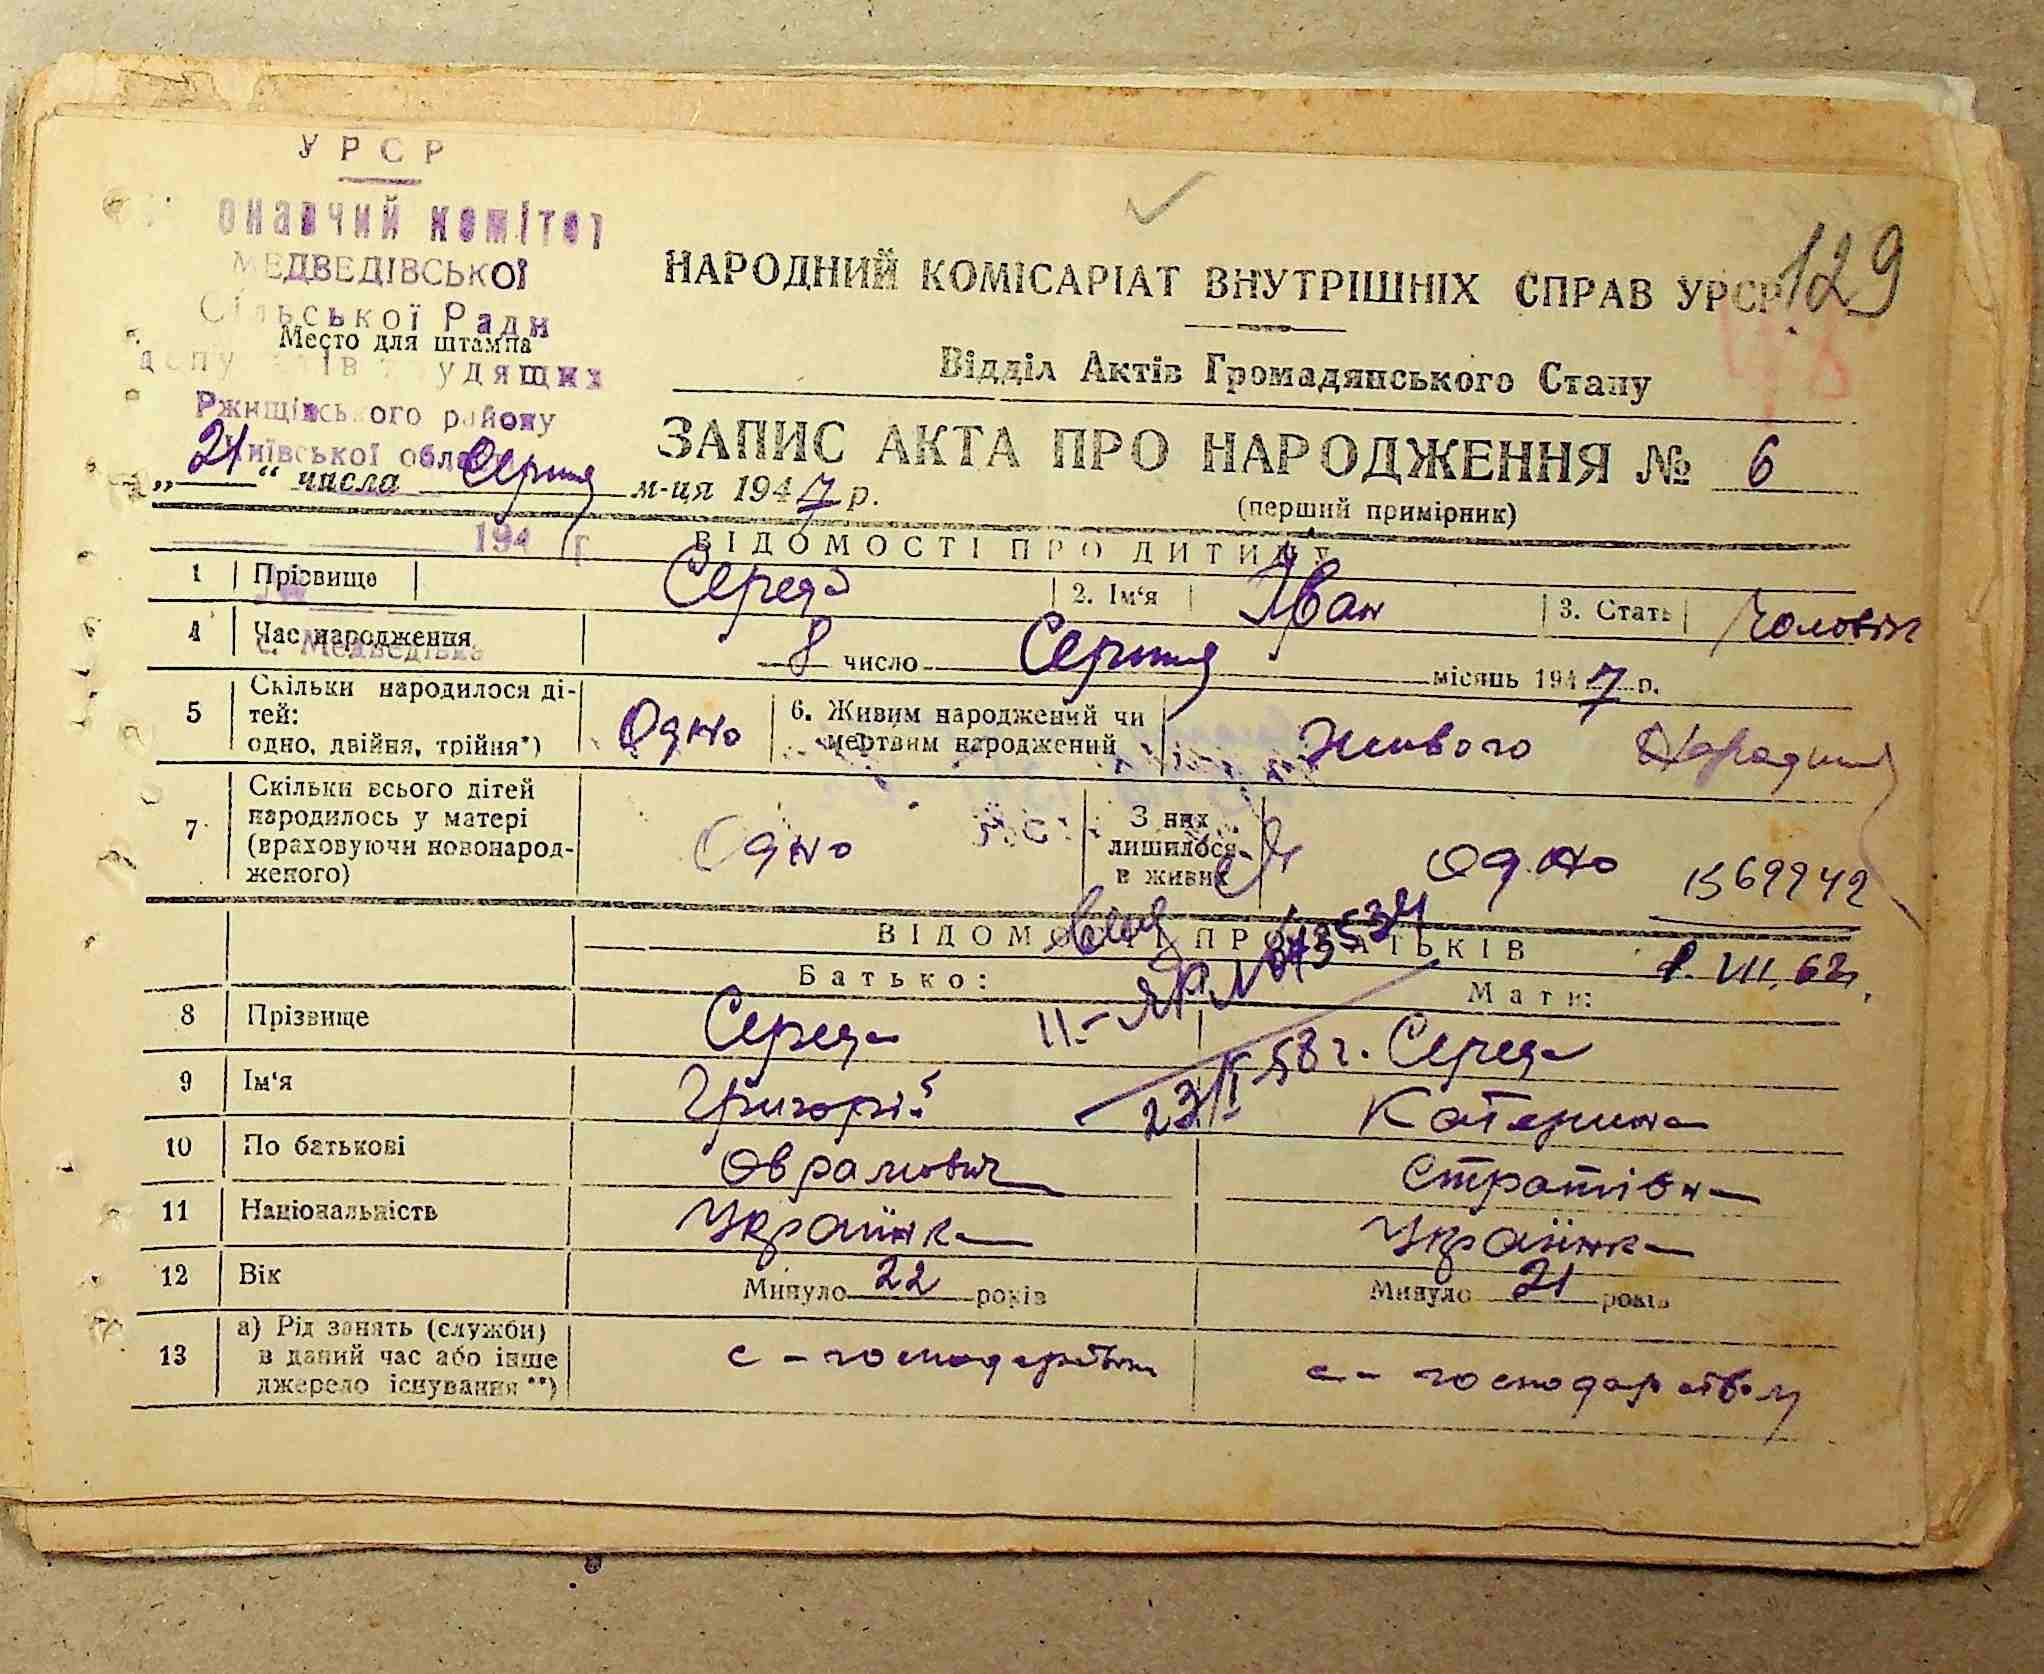 УРСР
онавчий комітет
МЕДВЕДІВСЬКОЇ
Сільської Ради
Место для штампа
депутатів трудящих
Ржищівського району
Київської обла
129
НАРОДНИЙ КОМІСАРІАТ ВНУТРІШНІХ СПРАВ УРСР
Відділ Актів Громадянського Стану
ЗАПИС АКТА ПРО НАРОДЖЕННЯ № 6
(перший примірник)
„21“ числа Серпня м-ця 1947 р.
194 г
ВІДОМОСТІ ПРО ДИТИНУ
1 Прізвище Середа 2. Ім‘я Іван 3. Стать Чоловіч
4 Час народження 8 число Серпня місяць 1947 р.
с. Медведівка
5 Скільки народилося дітей: одно, двійня, трійня*) Одно 6. Живим народжений чи мертвим народжений живого
7 Скільки всього дітей народилось у матері (враховуючи новонародженого) Одно З них лишилося в живих одно
1569242
ВІДОМОСТІ ПРО БАТЬКІВ
Батько: Мати:
8 Прізвище Середа Середа
23/II 58 г.
9 Ім‘я Григорій Катерина
10 По батькові Оврамович Стратівна
11 Національність Українка Українка
12 Вік Минуло 22 років Минуло 21 років
13 а) Рід занять (служби) в даний час або інше джерело існування **) с-господарством с-господарством